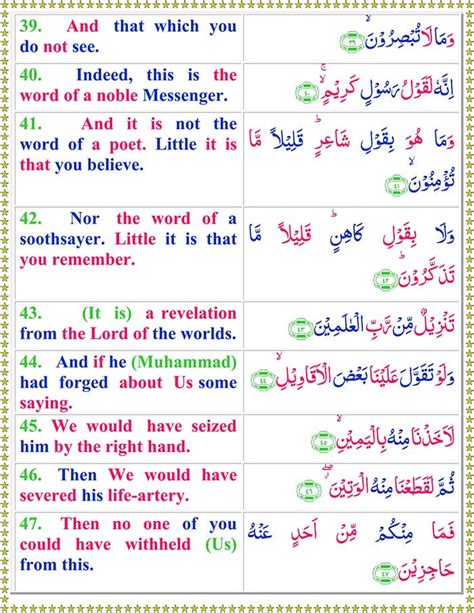 39. And that which you
do not see.
وَمَا لَا تُبْصِرُوْنَۙ ﴿٣٩﴾
40. Indeed, this is the
word of a noble Messenger.
اِنَّهٗ لَقَوْلُ رَسُوْلٍ كَرِيْمٍۚۙ ﴿٤٠﴾
41. And it is not the
word of a poet. Little it is
that you believe.
وَمَا هُوَ بِقَوْلِ شَاعِرٍؕ قَلِيْلًا مَّا
تُؤْمِنُوْنَۙ ﴿٤١﴾
42. Nor the word of a
soothsayer. Little it is that
you remember.
وَلَا بِقَوْلِ كَاهِنٍؕ قَلِيْلًا مَّا
تَذَكَّرُوْنَؕ ﴿٤٢﴾
43. (It is) a revelation
from the Lord of the worlds.
تَنْزِيْلٌ مِّنْ رَّبِّ الْعٰلَمِيْنَ ﴿٤٣﴾
44. And if he (Muhammad)
had forged about Us some
saying.
وَلَوْ تَقَوَّلَ عَلَيْنَا بَعْضَ الْاَقَاوِيْلِۙ ﴿٤٤﴾
45. We would have seized
him by the right hand.
لَاَخَذْنَا مِنْهُ بِالْيَمِيْنِۙ ﴿٤٥﴾
46. Then We would have
severed his life-artery.
ثُمَّ لَقَطَعْنَا مِنْهُ الْوَتِيْنَۖ ﴿٤٦﴾
47. Then no one of you
could have withheld (Us)
from this.
فَمَا مِنْكُمْ مِّنْ اَحَدٍ عَنْهُ
حَاجِزِيْنَ ﴿٤٧﴾